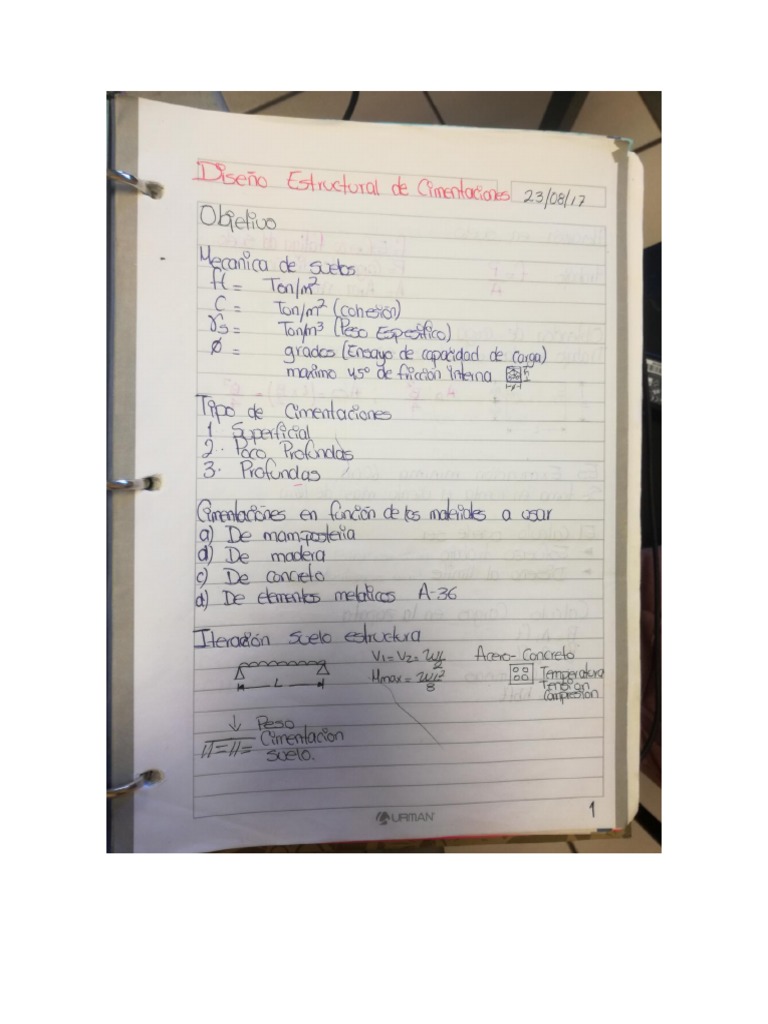 Diseño Estructural de Cimentaciones 23/08/17
Objetivo
Mecanica de suelos
ft = Ton/m²
C = Ton/m² (cohesión)
γs = Ton/m³ (Peso Especifico)
Ø = grados (Ensayo de capacidad de carga)
maximo 45° de fricción interna
Tipo de Cimentaciones
1 Superficial
2.. Poco Profundas
3. Profundas
Cimentaciones en función de los materiales a usar
a) De mamposteria
d) De madera
c) De concreto
d) De elementos metalicos A-36
Iteración suelo estructura
V1 = V2 = Wl/2 Acero-Concreto
Mmax = Wl²/8 Temperatura
L Tensión
Compresión
Peso
Cimentacion
suelo.
URMAN
1